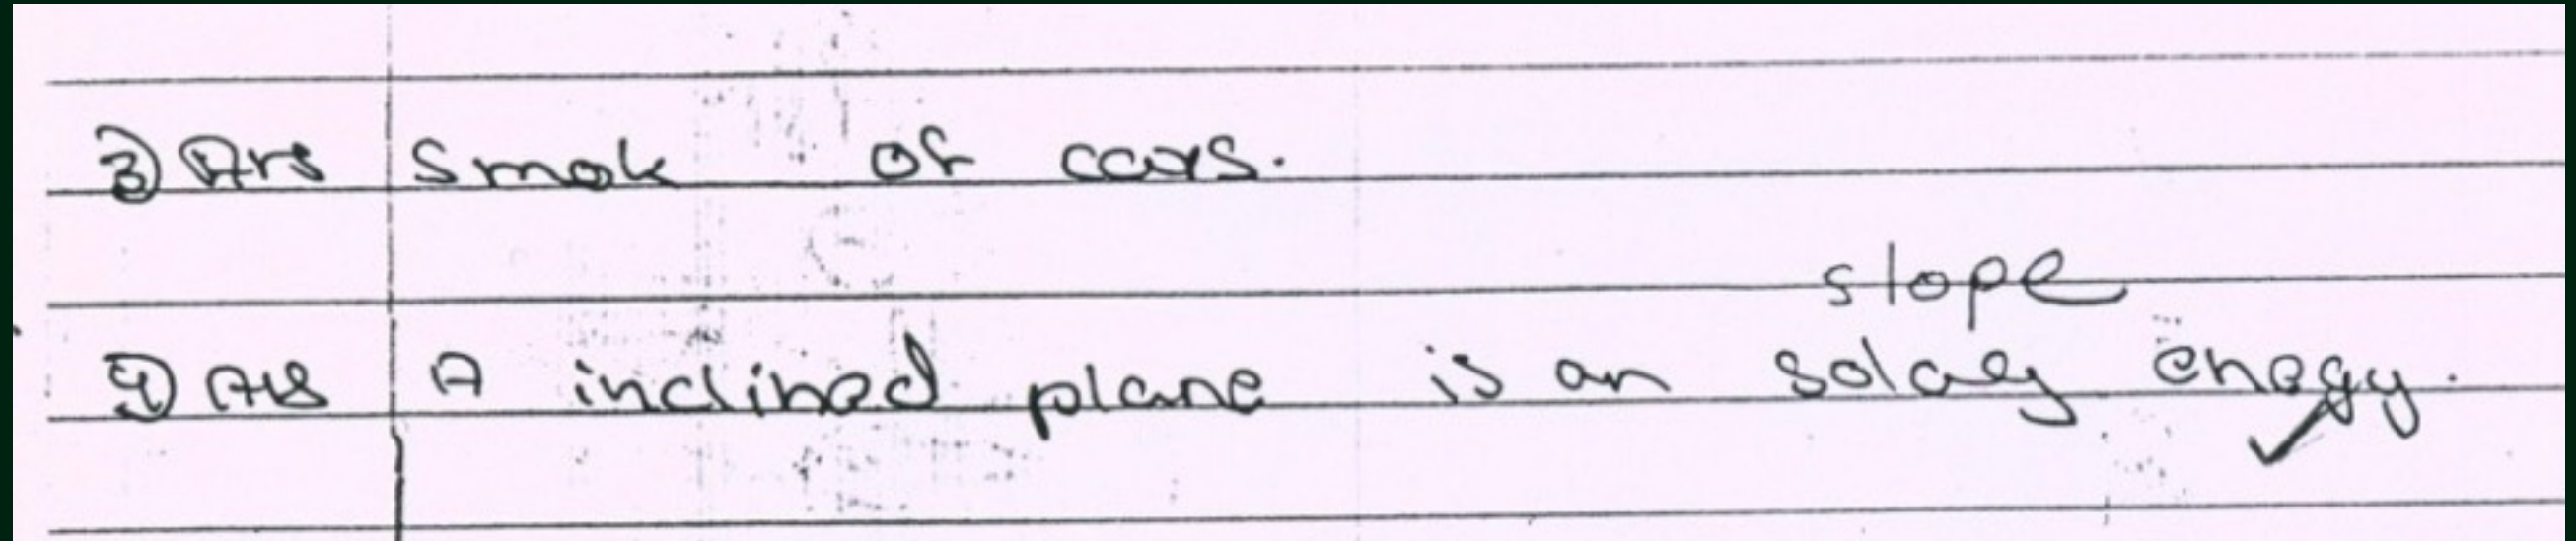 3) Ans Smok of cars.
slope
4) Ans A inclined plane is an solary enegy.